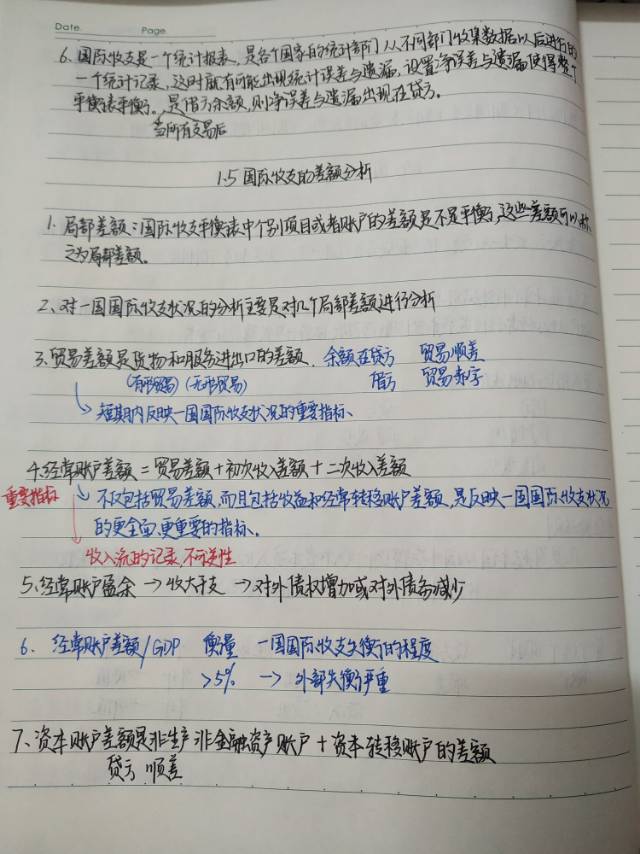 Date Page
6. 国际收支是一个统计报表,是各个国家的统计部门从不同部门收集数据以后进行的
一个统计记录,这时就有可能出现统计误差与遗漏,设置净误差与遗漏使得整个
平衡表平衡。是借方余额,则净误差与遗漏出现在贷方。
当所有交易后
1.5 国际收支的差额分析
1. 局部差额:国际收支平衡表中个别项目或者账户的差额是不是平衡,这些差额可以称
之为局部差额。
2、对一国国际收支状况的分析主要是对几个局部差额进行分析
3、贸易差额是货物和服务进出口的差额. 余额在贷方 贸易顺差
(有形贸易) (无形贸易) 借方 贸易赤字
↳ 短期内反映一国国际收支状况的重要指标.
4、经常账户差额 = 贸易差额 + 初次收入差额 + 二次收入差额
重要指标 ↳ 不仅包括贸易差额,而且包括收益和经常转移账户差额,是反映一国国际收支状况
的更全面,更重要的指标.
收入流的记录,不可逆性
5、经常账户盈余 → 收大于支 → 对外债权增加或对外债务减少
6. 经常账户差额/GDP 衡量 一国国际收支失衡的程度
>5% → 外部失衡严重
7、资本账户差额是非生产非金融资产账户 + 资本转移账户的差额
贷方 顺差